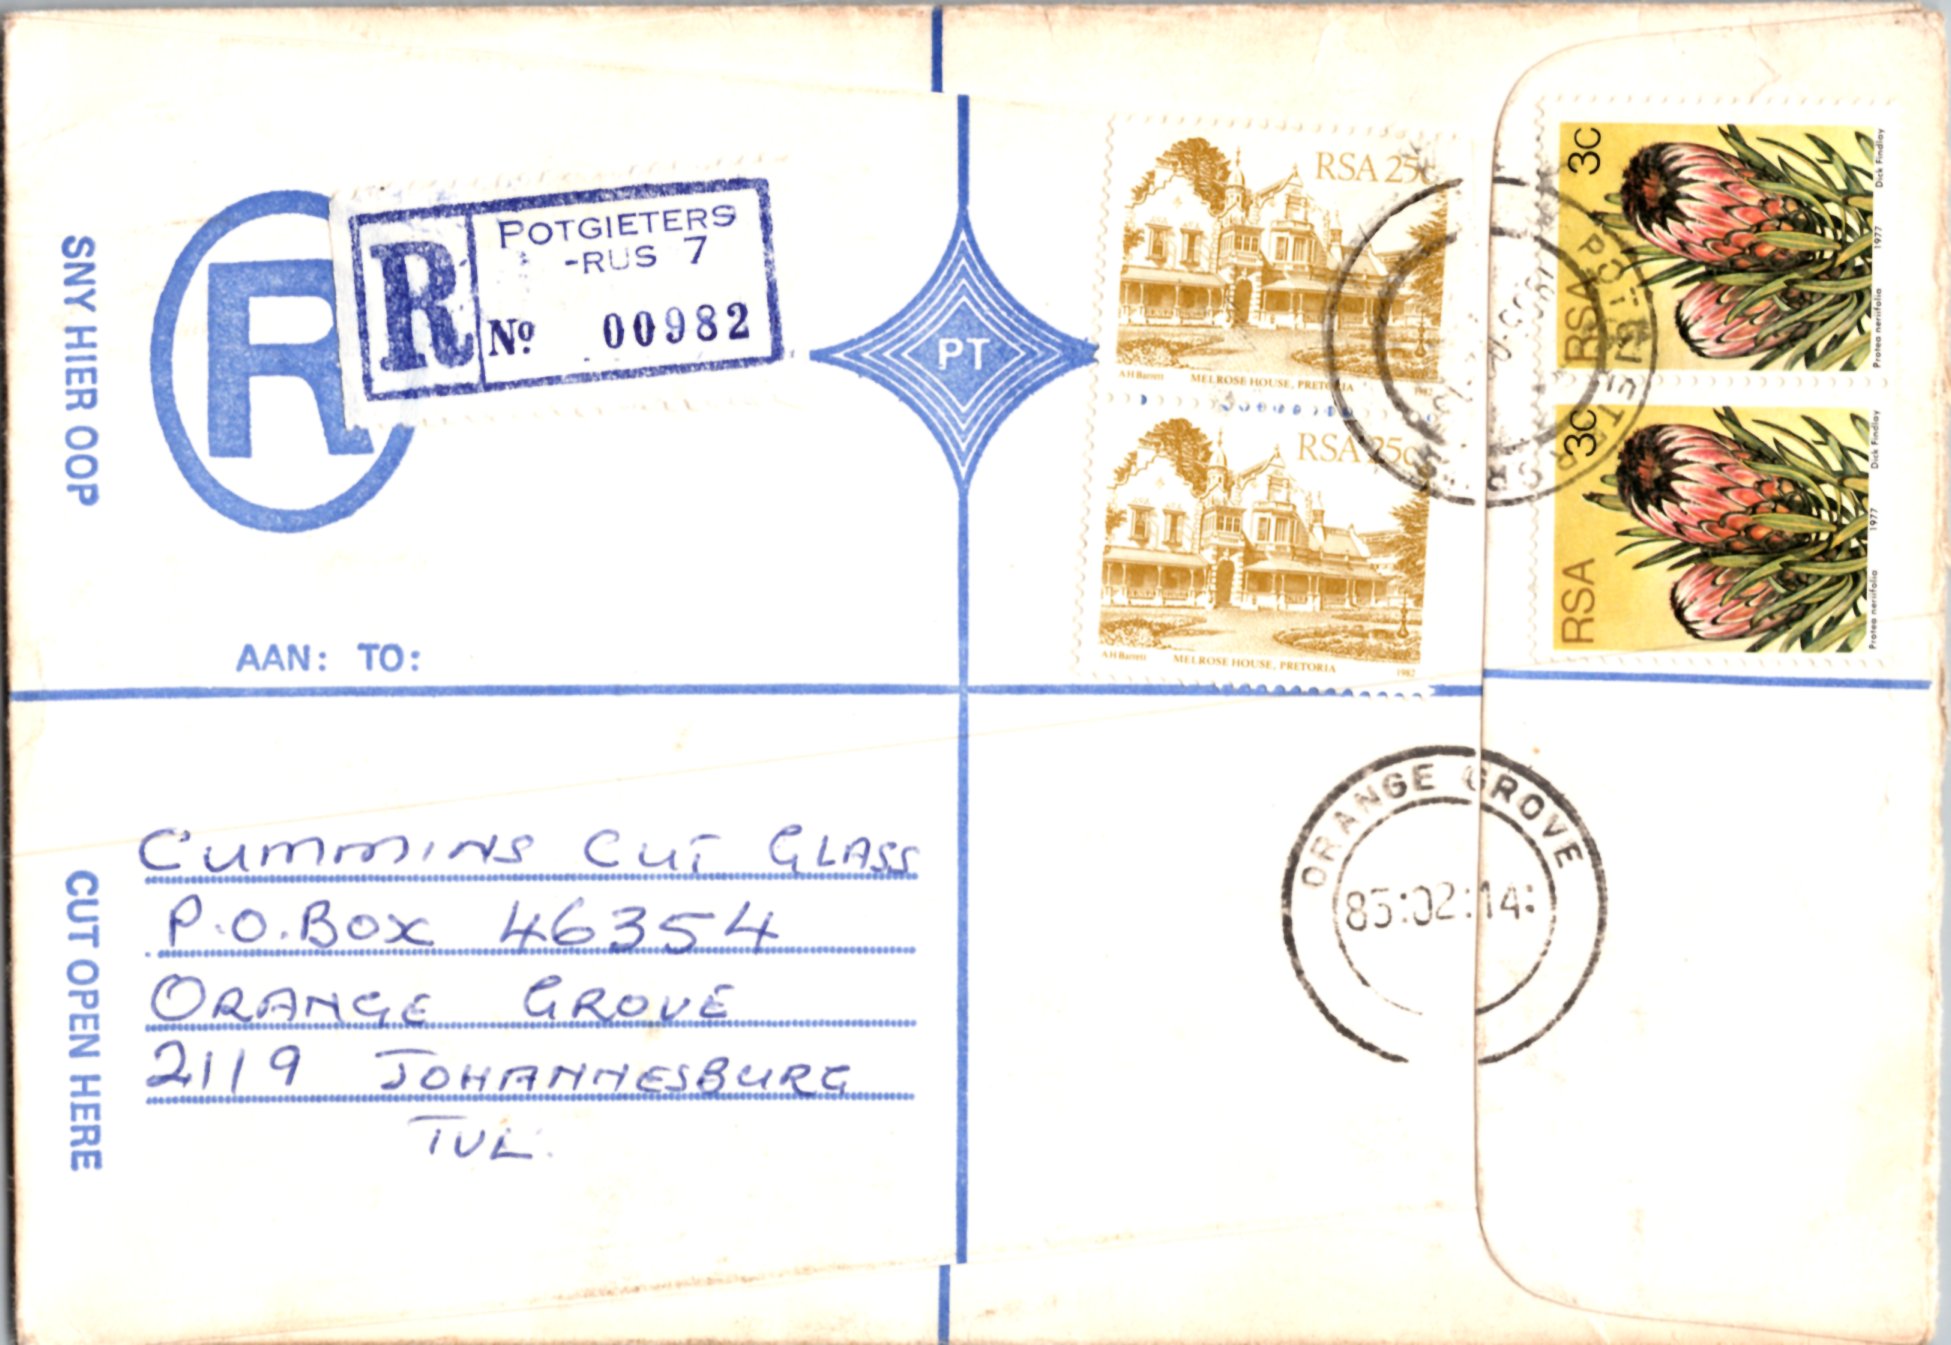 SNY HIER OOP
R
R
POTGIETERS
-RUS 7
No 00982
PT
RSA 25c
A H Barrett MELROSE HOUSE, PRETORIA 1982
RSA 25c
A H Barrett MELROSE HOUSE, PRETORIA 1982
RSA 3c
Protea neriifolia 1977 Dick Findlay
RSA 3c
Protea neriifolia 1977 Dick Findlay
AAN: TO:
CUT OPEN HERE
CUMMINS CUT GLASS
P.O. BOX 46354
ORANGE GROVE
2119 JOHANNESBURG
TVL.
ORANGE GROVE
85:02:14: